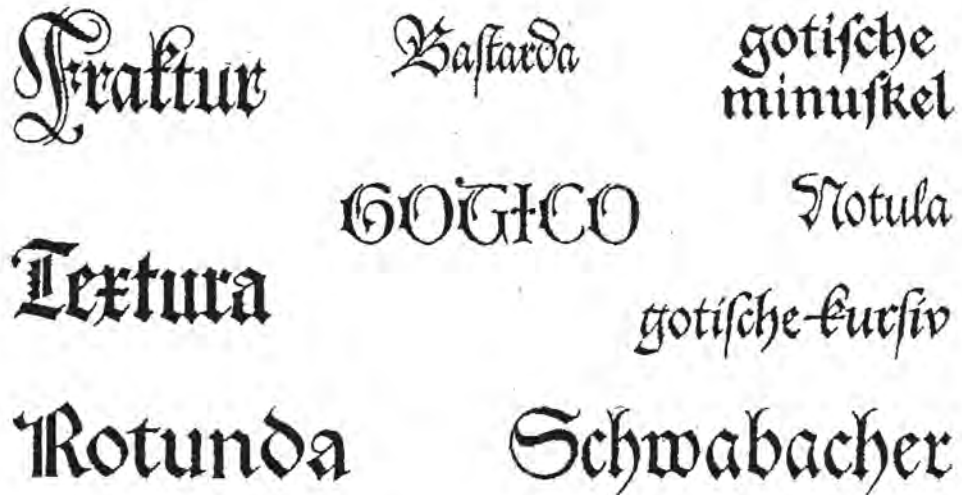 Fraktur
Baſtarda
gotiſche
minuſkel
GOTICO
Notula
Textura
gotiſche-kurſiv
Rotunda
Schwabacher